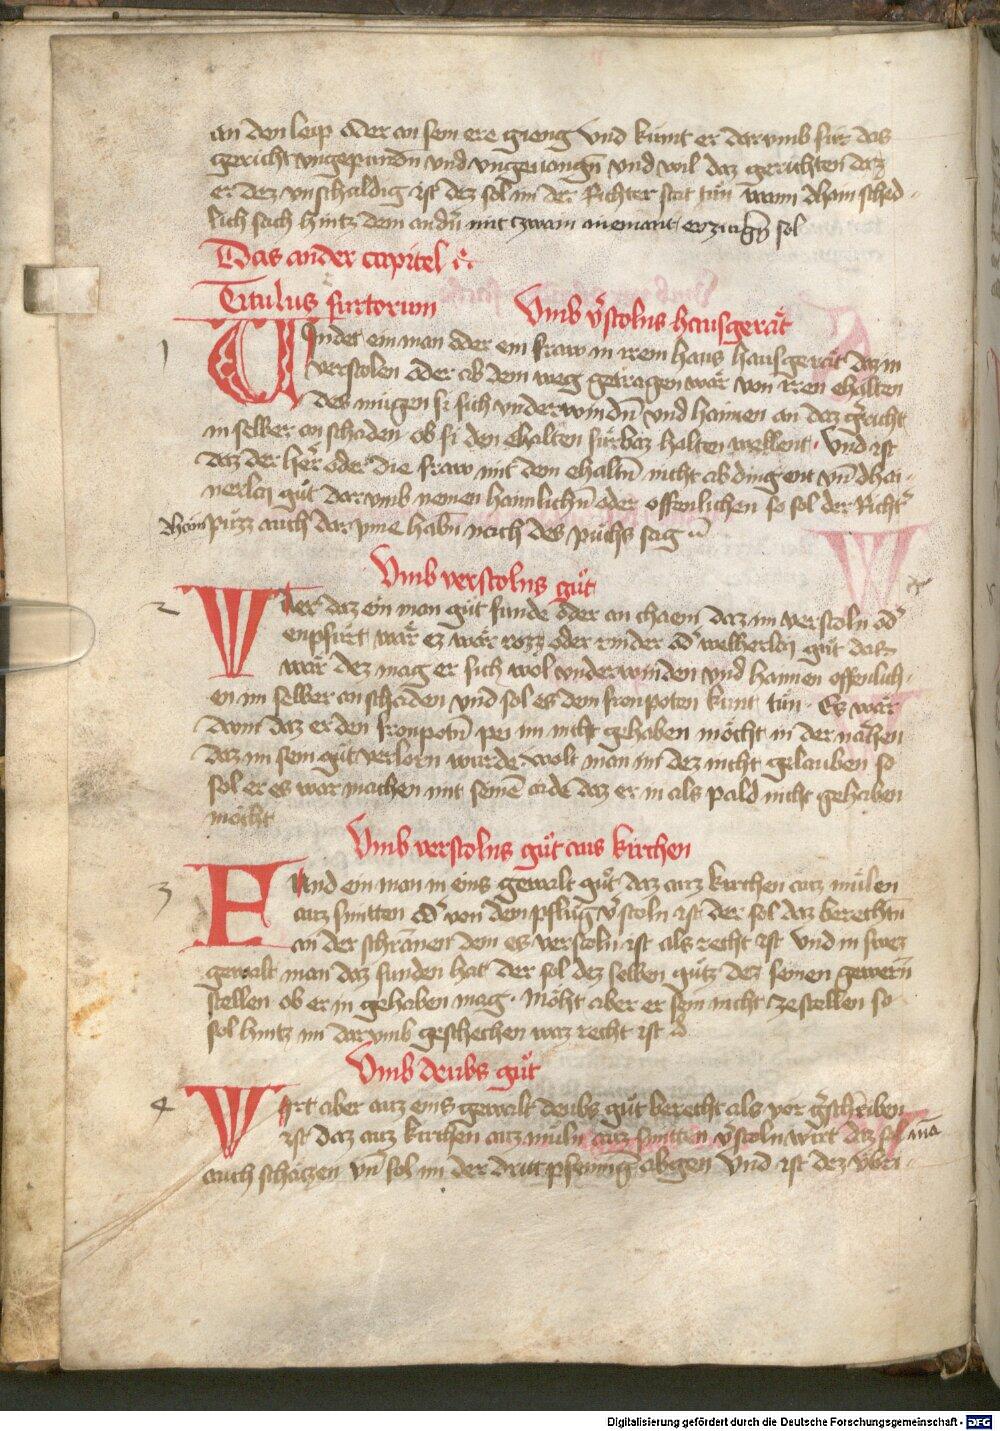 an den leip oder an sein ere gieng vnd kümt er darumb für das
gericht vngepundn̄ vnd vngeuangn̄ vnd wil daz gerichten daz
er dez vnschuldig ist dez sol im der Richter stat tün wann dhain sched-
lich sach hintz dem andn̄ mit czwain aiemant erzewgn̄ sol
Das ander capitel
Titulus furtorum Vmb v̄stolns hausgerät
Uindet ein man oder ein fraw in irem haus hausgerät daz in
verstolen oder ab dem weg getragen wär von iren ehalten
des mügen si sich vnderwindn̄ vnd haimen an daz g̅richt
in selber an schaden ob si den ehalten fürbaz halten wellent · Vnd ist
daz der her̄ oder die fraw mit dem ehaltn̄ nicht abdingent vn̄ dhai-
nerlaj güt darumb nemen haimlichn̄ oder offenlichen so sol der Richt̄
dhain püzz auch dar vme habn̄ nach des püchs sag
Vmb verstolns güt
Wer daz ein man güt funde oder an chaem daz im verstoln od̄
enpfürt wär ez wär rozz oder rinder od̄ welherlaj güt daz
wär dez mag er sich wol vnderwinden vnd haimen offenlich-
en im selber an schaden vnd sol es dem fronpoten kunt tün · Es wär
dann daz er den fronpotn̄ pei im nicht gehaben möcht in der nähen
daz im sein güt verlorn wurde wolt man im dez nicht gelauben so
sol er es war machen mit seinē aide daz er in als pald nicht gehaben
möcht
Vmb verstolns güt aus kirchen
Eund ein man in eins gewalt güt daz auz kirchen auz mülen
auz smitten od̄ von dem pflug v̄stoln ist der sol daz berechtn̄
an der schrannen dem es verstoln ist als recht ist Vnd in swez
gewalt man daz funden hat der sol dez selben gütz dez seinen gewern̄
stellen ob er in gehaben mag · Möht aber er sein nicht zestellen so
sol hintz im darumb geschechen waz recht ist
Vmb deubs güt
Wirt aber auz eins gewalt deubs güt berecht als vor g̅schriben
ist daz auz kirchen auz müln auz smitten v̄stoln wirt daz sol mā
auch schätzen vn̄ sol im der dritt pfenning abgen Vnd ist dez vbri-
1
2
3
4
Digitalisierung gefördert durch die Deutsche Forschungsgemeinschaft - DFG